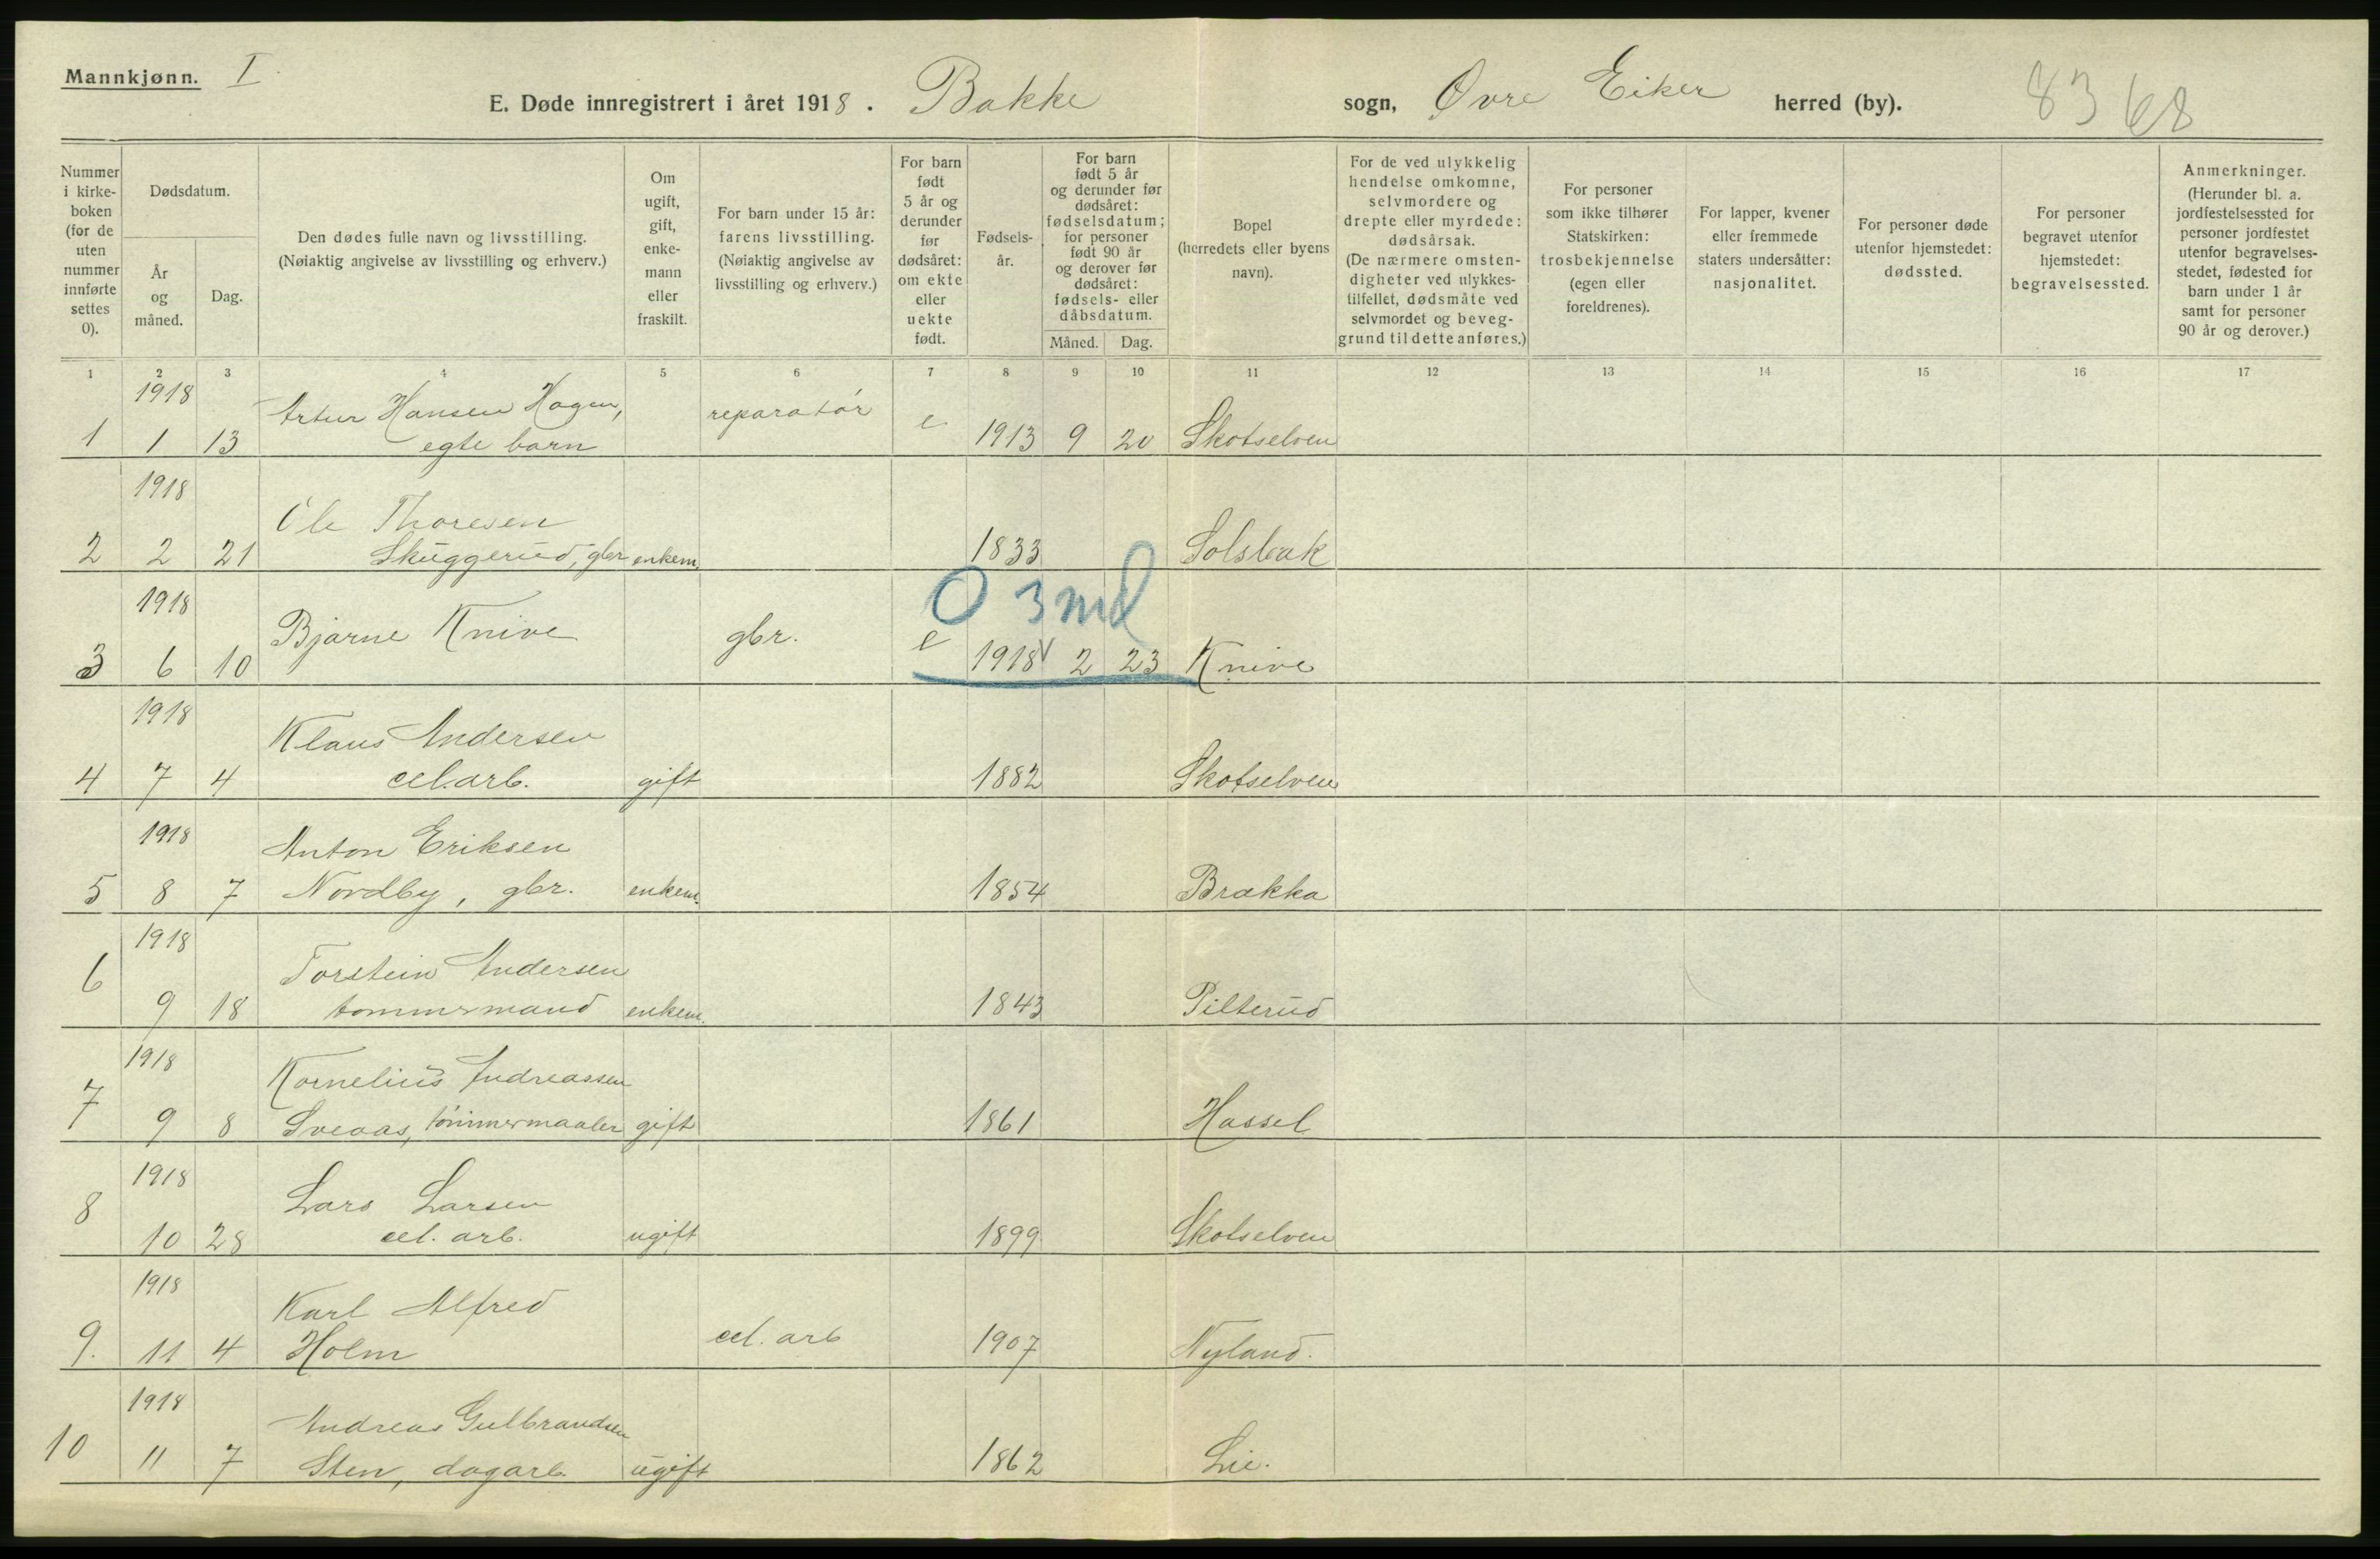 Mannkjønn. I
E. Døde innregistrert i året 1918. Bakke sogn, Øvre Eiker herred (by). 83 68
Nummer i kirke-boken (for de uten nummer innførte settes 0).
Dødsdatum.
År og måned.
Dag.
Den dødes fulle navn og livsstilling.
(Nøiaktig angivelse av livsstilling og erhverv.)
Om ugift, gift, enke-mann eller fraskilt.
For barn under 15 år: farens livsstilling. (Nøiaktig angivelse av livsstilling og erhverv.)
For barn født 5 år og derunder før dødsåret: om ekte eller uekte født.
Fødsels-år.
For barn født 5 år og derunder før dødsåret: fødselsdatum; for personer født 90 år og derover før dødsåret: fødsels- eller dåbsdatum.
Måned. Dag.
Bopel (herredets eller byens navn).
For de ved ulykkelig hendelse omkomne, selvmordere og drepte eller myrdede: dødsårsak. (De nærmere omsten-digheter ved ulykkes-tilfellet, dødsmåte ved selvmordet og beveg-grund til dette anføres.)
For personer som ikke tilhører Statskirken: trosbekjennelse (egen eller foreldrenes).
For lapper, kvener eller fremmede staters undersåtter: nasjonalitet.
For personer døde utenfor hjemstedet: dødssted.
For personer begravet utenfor hjemstedet: begravelsessted.
Anmerkninger. (Herunder bl. a. jordfestelsessted for personer jordfestet utenfor begravelses-stedet, fødested for barn under 1 år samt for personer 90 år og derover.)
1 2 3 4 5 6 7 8 9 10 11 12 13 14 15 16 17
1918 Artur Hansen Hagen, reparatør e
1 1 13 egte barn 1913 9 20 Skotselven
1918 Ole Thoresen
2 2 21 Skuggerud, gbr enkem. 1833 Solsbak
O 3 md
1918 Bjarne Knive gbr. e
3 6 10 1918 v 2 23 Knive
1918 Klaus Andersen
4 7 4 cel.arb. gift 1882 Skotselven
1918 Anton Eriksen
5 8 7 Nordby, gbr. enkem. 1854 Brakka
1918 Torstein Andersen
6 9 18 tømmermand enkem. 1843 Pilterud
1918 Kornelius Andreassen
7 9 8 Sveaas, tømmermaaler gift 1861 Hassel
1918 Lars Larsen
8 10 28 cel. arb. ugift 1899 Skotselven
1918 Karl Alfred
9. 11 4 Holm cel. arb 1907 Nyland.
1918 Andreas Gulbrandsen
10 11 7 Sten, dagarb. ugift 1862 Lie.